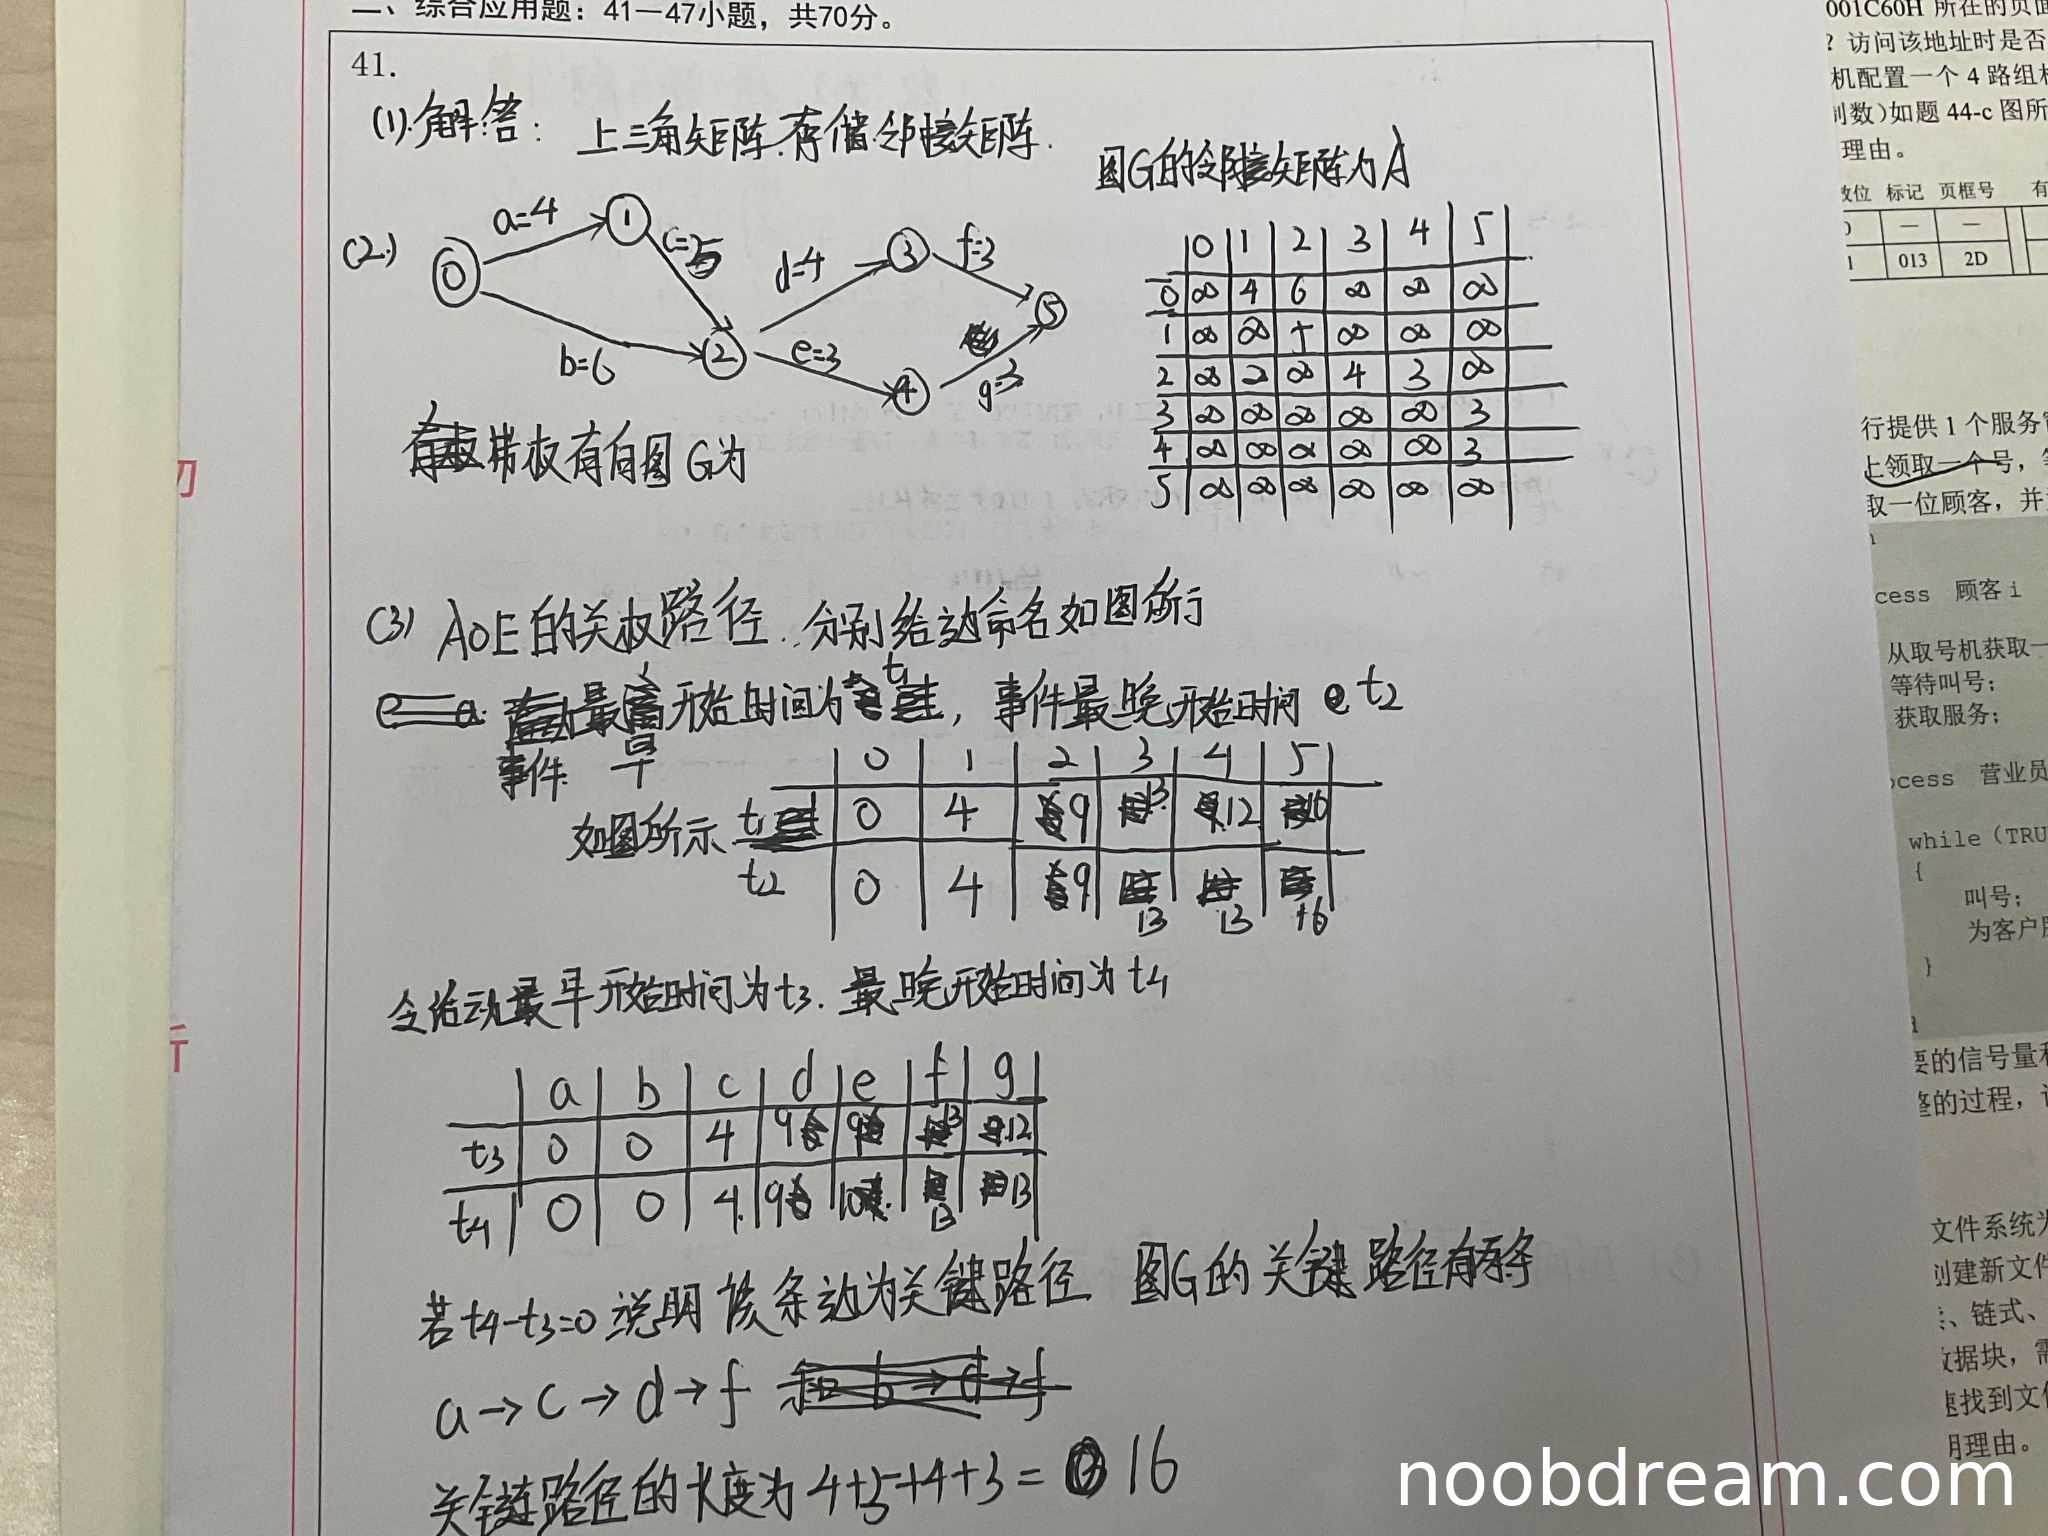 二、综合应用题：41—47小题，共70分。
41.
(1).解答：上三角矩阵.存储.邻接矩阵.
图G的邻接矩阵为A
(2.)
0 a=4 1 c=5 2 b=6 d=4 3 f=3 5 e=3 4 g=3
带权有向图G为
0 1 2 3 4 5
0 ∞ 4 6 ∞ ∞ ∞
1 ∞ ∞ 5 ∞ ∞ ∞
2 ∞ ∞ ∞ 4 3 ∞
3 ∞ ∞ ∞ ∞ ∞ 3
4 ∞ ∞ ∞ ∞ ∞ 3
5 ∞ ∞ ∞ ∞ ∞ ∞
(3) AOE的关权路径.分别给边命名如图所示
事件最早开始时间为t1，事件最晚开始时间 t2
如图所示
0 1 2 3 4 5
t1 0 4 9 13 12 16
t2 0 4 9 13 13 16
令活动最早开始时间为t3.最晚开始时间为t4
a b c d e f g
t3 0 0 4 9 9 13 12
t4 0 0 4 9 10 13 13
若t4-t3=0 说明该条边为关键路径 图G的关键路径有
a→c→d→f
关键路径的长度为4+5+4+3= 16
001C60H 所在的页面
？访问该地址时是否
机配置一个 4 路组相
制数)如题 44-c 图所
理由。
效位 标记 页框号 有
0 — —
1 013 2D
行提供 1 个服务窗
上领取一个号，等
取一位顾客，并为
cess 顾客 i
从取号机获取一
等待叫号；
获取服务；
ocess 营业员
while (TRU
{
叫号；
为客户服
}
要的信号量和
整的过程，说
文件系统为
创建新文件
、链式、
数据块，需
速找到文件
明理由。
noobdream.com